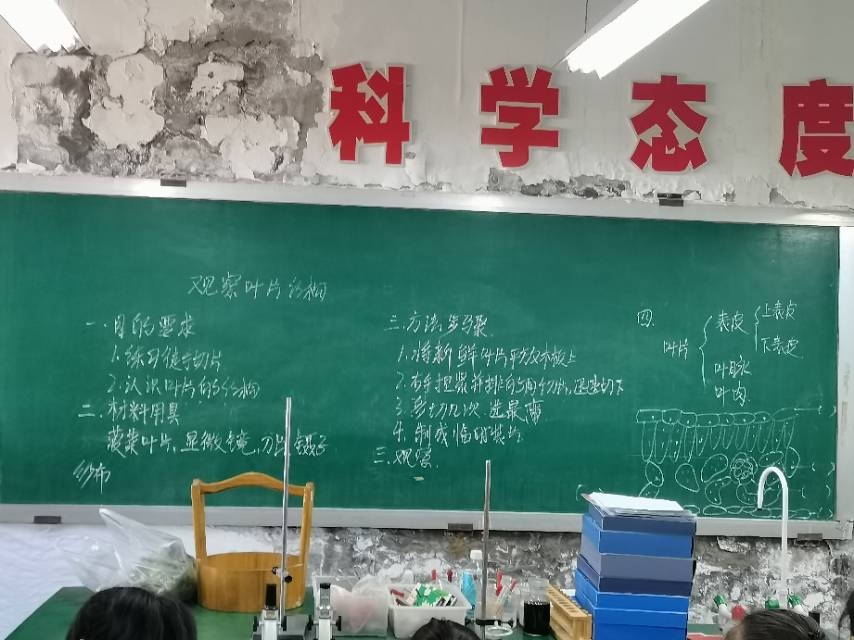 科学态度
观察叶片结构
一.目的要求
1.练习徒手切片
2.认识叶片的结构
二.材料用具
菠菜叶片,显微镜,刀片,镊子
纱布
三.方法步骤
1.将新鲜叶片平放木板上
2.右手捏紧并排的两个刀片,迅速切下
3.多切几次 选最薄
4.制成临时装片
三.观察
四.
叶片
表皮
上表皮
下表皮
叶脉
叶肉